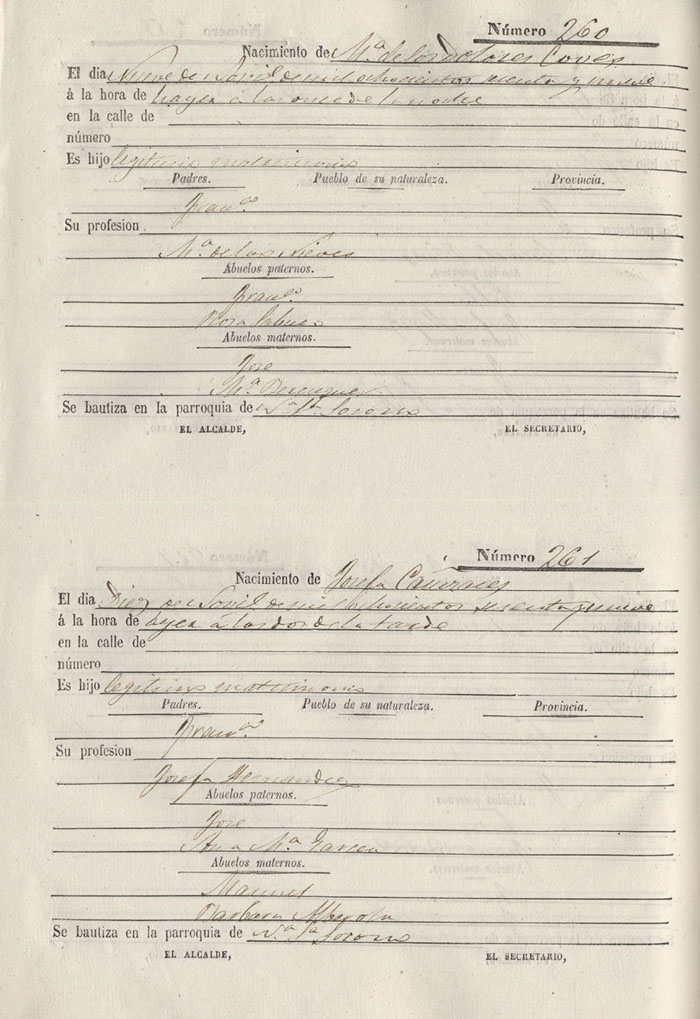 Número 260
Nacimiento de Mª de los Dolores Coves
El dia Nueve de Abril de mil ochocientos sesenta y nueve
á la hora de hayer a la once de la noche
en la calle de
número
Es hijo legitimo matrimonio
Padres. Pueblo de su naturaleza. Provincia.
Franco
Su profesion
Mª de las Nieves
Abuelos paternos.
Franco
Rosa
Abuelos maternos.
Jose
Mª Berenguer
Se bautiza en la parroquia de
EL ALCALDE, EL SECRETARIO,
Número 261
Nacimiento de Josefa Cañizares
El dia Diez de Abril de mil ochocientos sesenta y nueve
á la hora de ayer a las dos de la tarde
en la calle de
número
Es hijo legitimo matrimonio
Padres. Pueblo de su naturaleza. Provincia.
Franco
Su profesion
Josefa Hernandez
Abuelos paternos.
Jose
Ana Mª Garcia
Abuelos maternos.
Manuel
Barbara Alberola
Se bautiza en la parroquia de
EL ALCALDE, EL SECRETARIO,